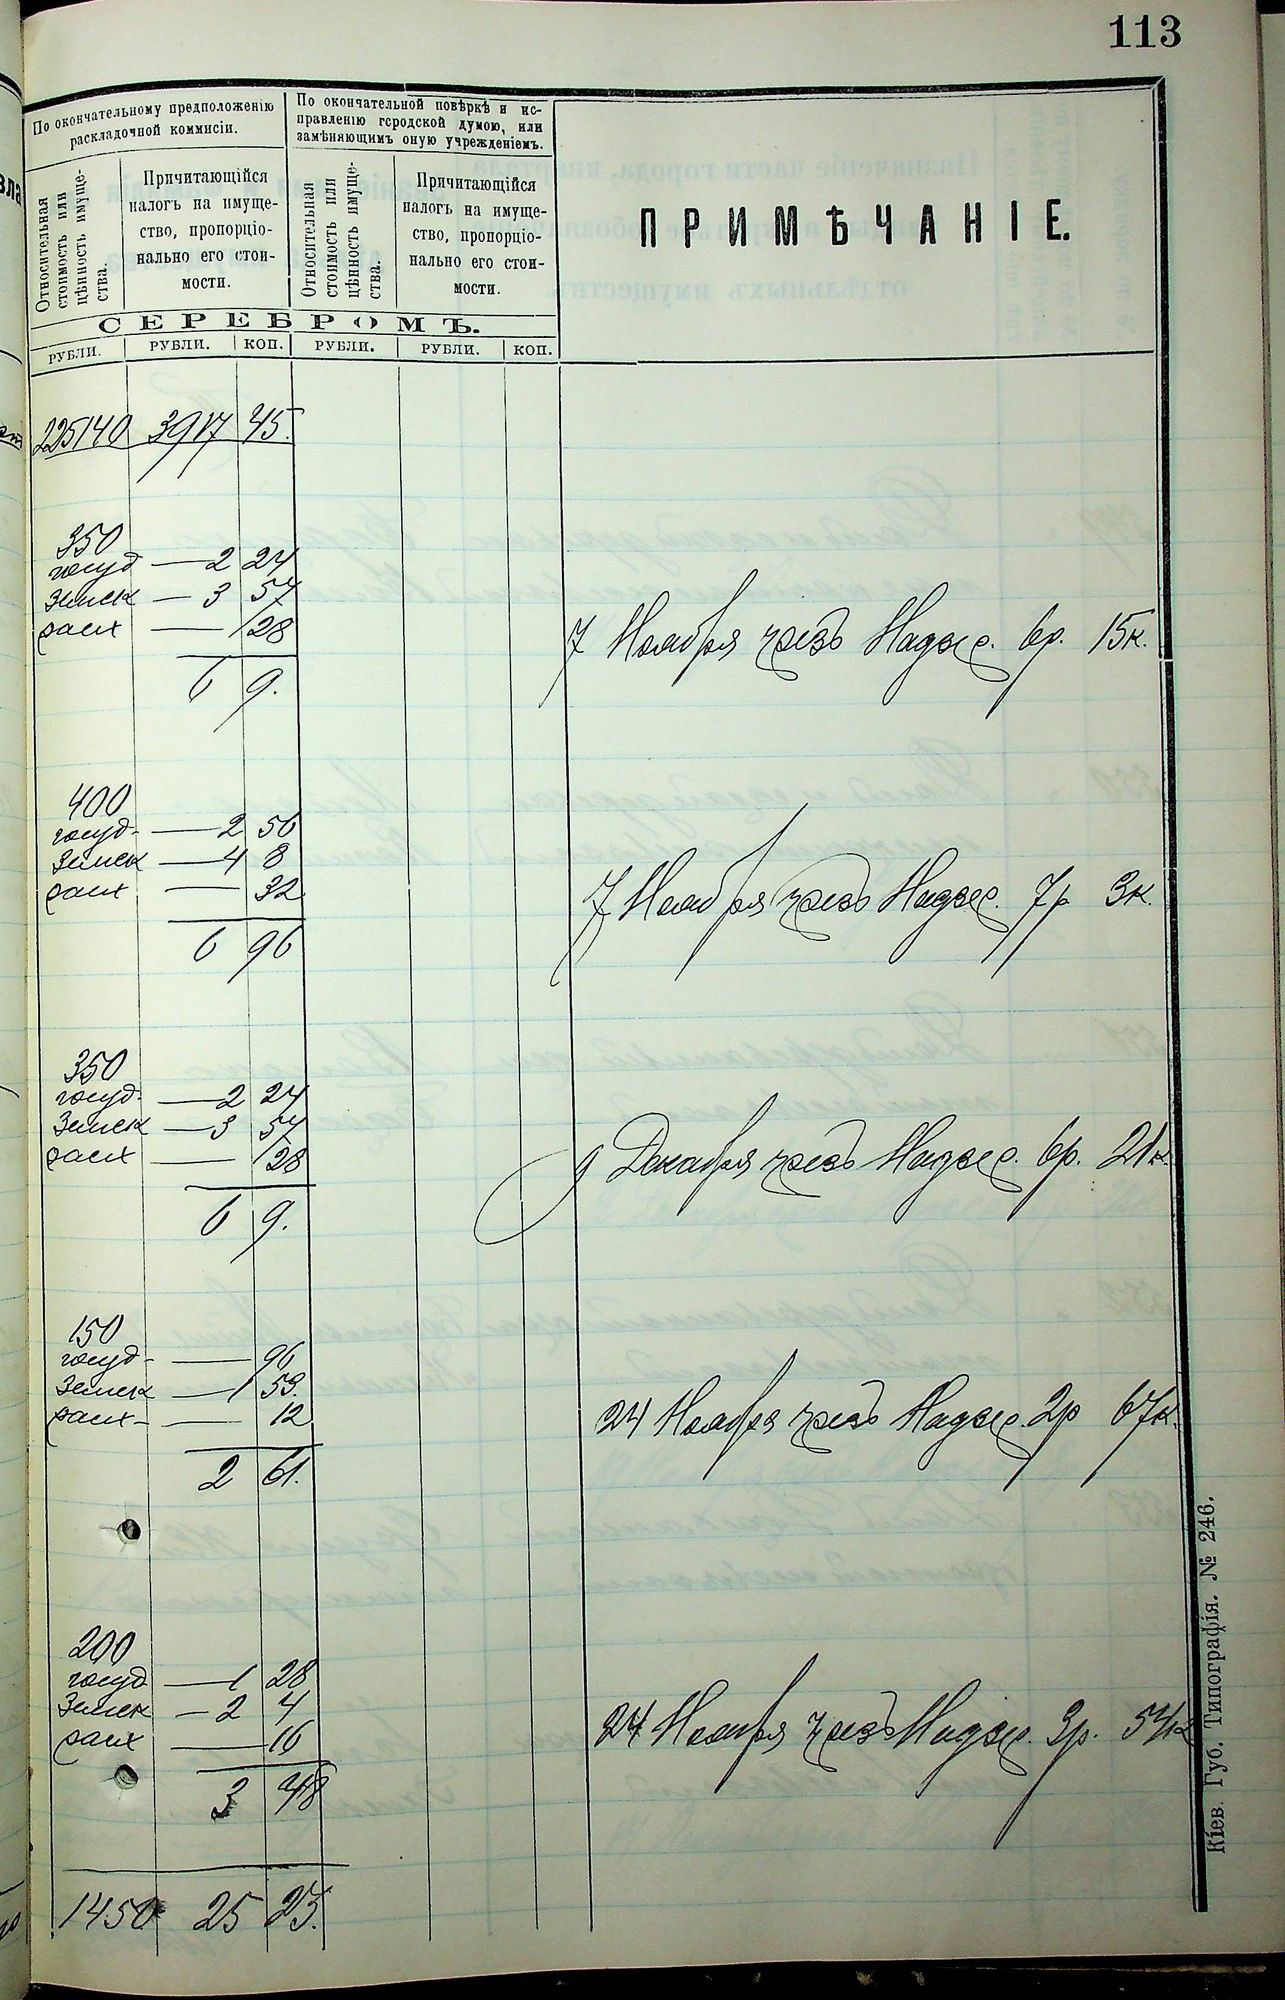 113
По окончательному предположенію
раскладочной коммисіи.
По окончательной повѣркѣ и ис-
правленію городской думою, или
замѣняющимъ оную учрежденіемъ.
Относительная
стоимость или
цѣнность имуще-
ства.
Причитающійся
налогъ на имуще-
ство, пропорціо-
нально его стои-
мости.
Относительная
стоимость или
цѣнность имуще-
ства.
Причитающійся
налогъ на имуще-
ство, пропорціо-
нально его стои-
мости.
ПРИМѢЧАНІЕ.
СЕРЕБРОМЪ.
РУБЛИ. РУБЛИ. КОП. РУБЛИ. РУБЛИ. КОП.
225140 3917 45.
350
госуд — 2 24
Земск — 3 57
расх — 28
6 9.
7 Ноября чрезъ Надзер. 6р. 15к.
400
госуд — 2 56
Земск — 4 8
расх — 32
6 96
7 Ноября чрезъ Надзер. 7р 3к.
350
госуд — 2 24
Земск — 3 57
расх — 28
6 9.
9 Декабря чрезъ Надзер. 6р. 21к.
150
госуд — 96
Земск — 1 53.
расх — 12
2 61.
24 Ноября чрезъ Надзер. 2р 67к.
200
госуд — 1 28
Земск — 2 4
расх — 16
3 48
24 Ноября чрезъ Надзер. 3р. 54к
1450 25 23.
Кіев. Губ. Типографія. № 246.